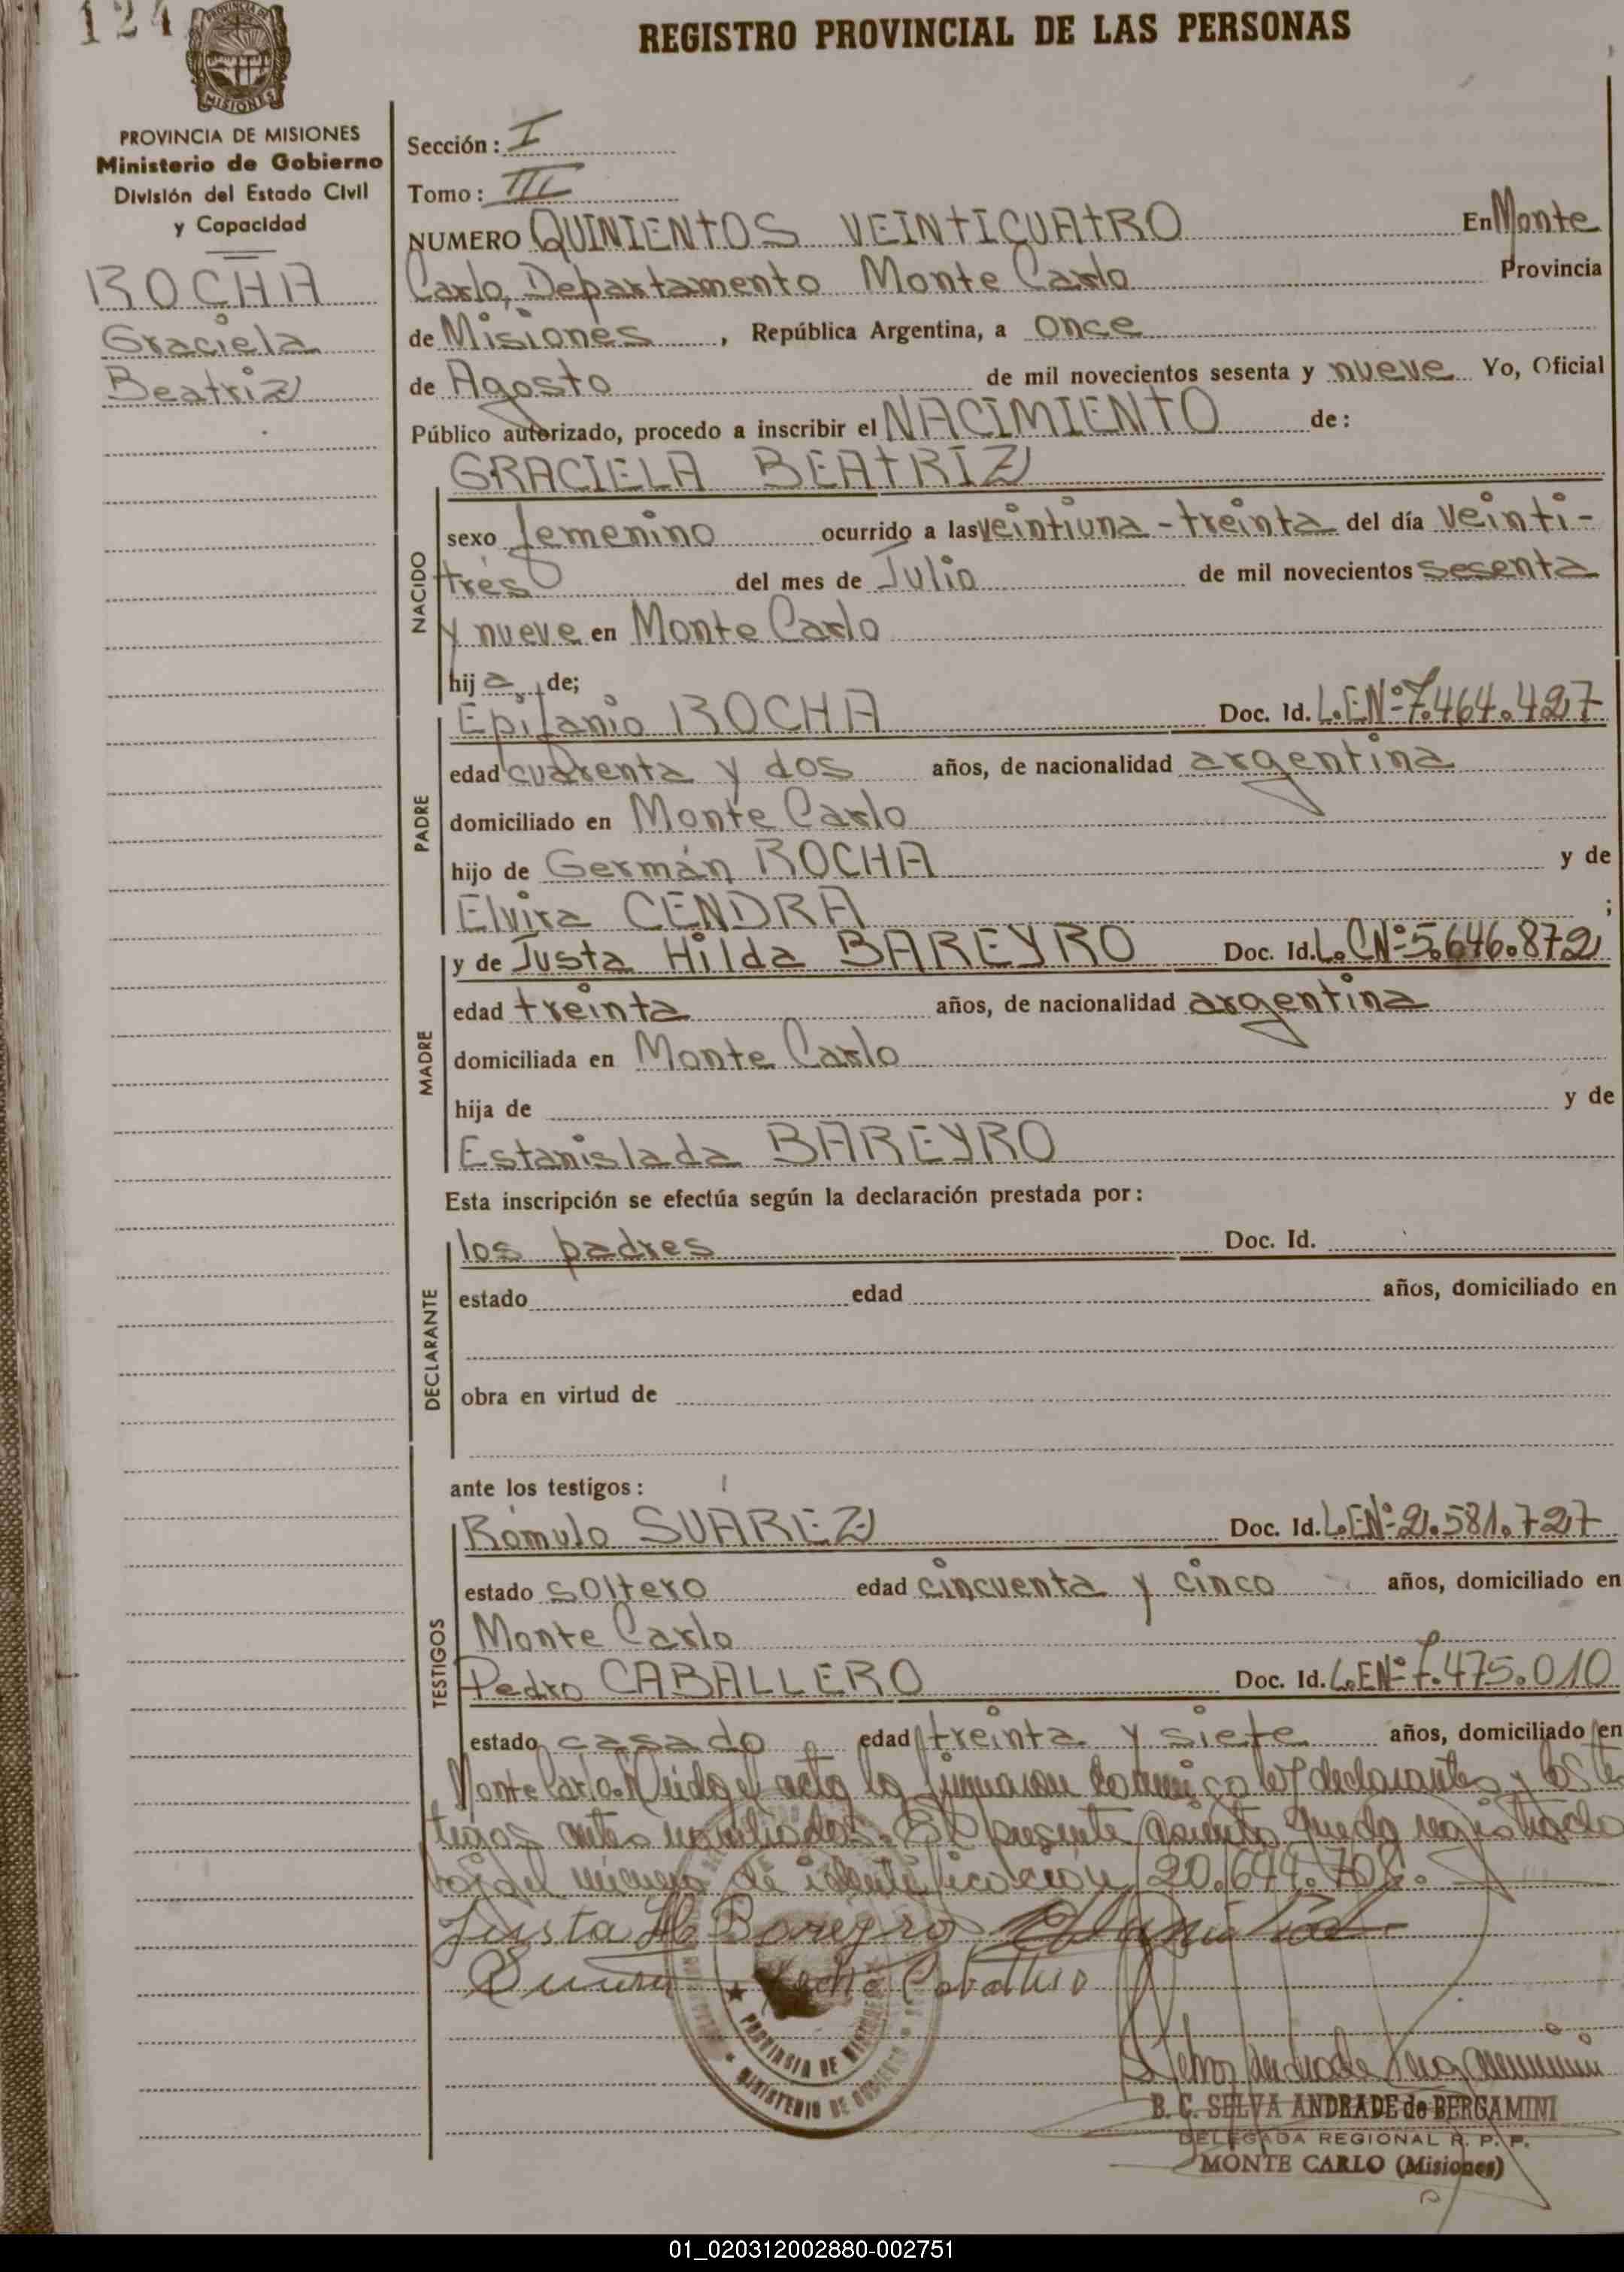 124
REGISTRO PROVINCIAL DE LAS PERSONAS
PROVINCIA DE MISIONES
Ministerio de Gobierno
División del Estado Civil
y Capacidad
ROCHA
Graciela
Beatriz
Sección: I
Tomo: III
NUMERO QUINIENTOS VEINTICUATRO En Monte
Carlo, Departamento Monte Carlo Provincia
de Misiones, República Argentina, a once
de Agosto de mil novecientos sesenta y nueve Yo, Oficial
Público autorizado, procedo a inscribir el NACIMIENTO de:
GRACIELA BEATRIZ
NACIDO
sexo femenino ocurrido a las veintiuna - treinta del día veinti-
trés del mes de Julio de mil novecientos sesenta
y nueve en Monte Carlo
hija, de;
PADRE
Epifanio ROCHA Doc. Id. L.E.Nº 7.464.427
edad cuarenta y dos años, de nacionalidad argentina
domiciliado en Monte Carlo
hijo de Germán ROCHA y de
Elvira CENDRA ;
MADRE
y de Justa Hilda BAREYRO Doc. Id. L.C.Nº 5.646.872
edad treinta años, de nacionalidad argentina
domiciliada en Monte Carlo
hija de y de
Estanislada BAREYRO
Esta inscripción se efectúa según la declaración prestada por:
DECLARANTE
los padres Doc. Id.
estado edad años, domiciliado en
obra en virtud de
ante los testigos:
TESTIGOS
Rómulo SUAREZ Doc. Id. L.E.Nº 2.581.727
estado soltero edad cincuenta y cinco años, domiciliado en
Monte Carlo
Pedro CABALLERO Doc. Id. L.E.Nº 7.475.010
estado casado edad treinta y siete años, domiciliado en
Monte Carlo. Leído el acta la firmaron conmigo los declarantes y los tes
tigos antes nombrados. El presente asiento queda registrado
bajo el número de identificación 20.644.
Justa H. Bareyro
Pedro Caballero
PROVINCIA DE MISIONES
MINISTERIO DE GOBIERNO
B. C. SELVA ANDRADE de BERGAMINI
DELEGADA REGIONAL R. P. P.
MONTE CARLO (Misiones)
01_020312002880-002751